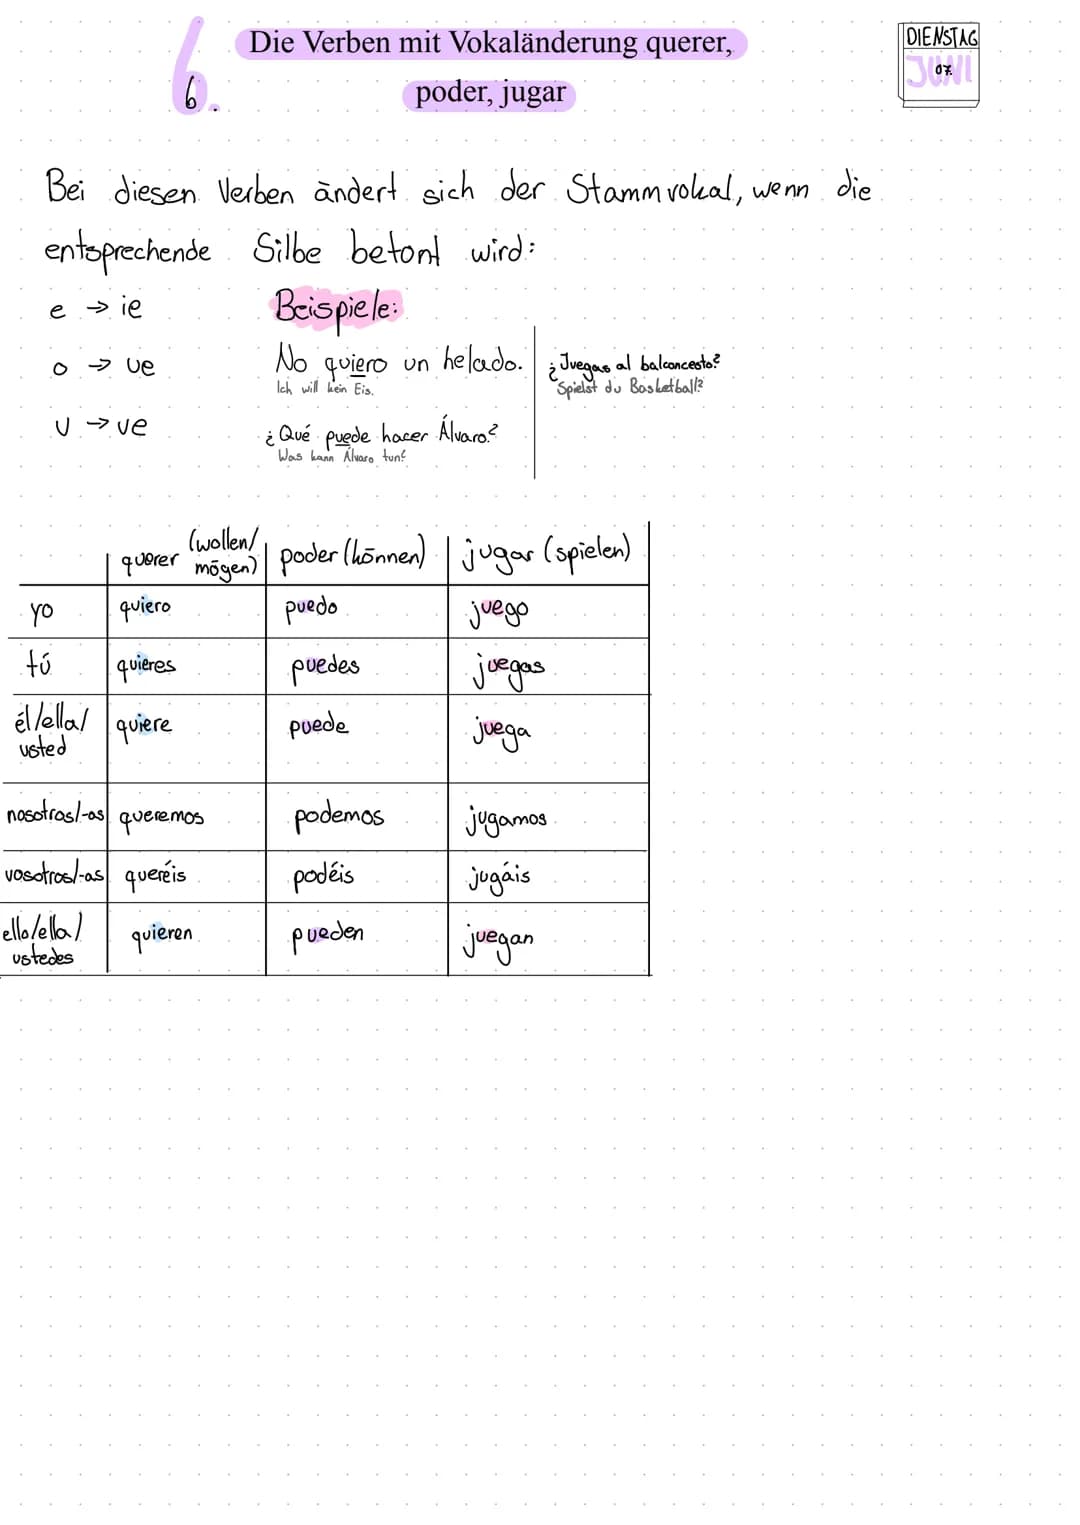 6.
6
Die Verben mit Vokaländerung querer,
poder, jugar
DIENSTAG
JUNI
07.
Bei diesen Verben ändert sich der Stammvokal, wenn die
entsprechende Silbe betont wird:
e → ie
o → ue
u → ue
Beispiele:
No quiero un helado.
Ich will kein Eis.
¿Qué puede hacer Álvaro?
Was kann Álvaro tun?
¿Juegas al balconcesto?
Spielst du Basketball?
querer (wollen/mögen) poder (können) jugar (spielen)
yo quiero puedo juego
tú quieres puedes juegas
él/ella/usted quiere puede juega
nosotros/-as queremos podemos jugamos
vosotros/-as queréis podéis jugáis
ello/ella/ustedes quieren pueden juegan